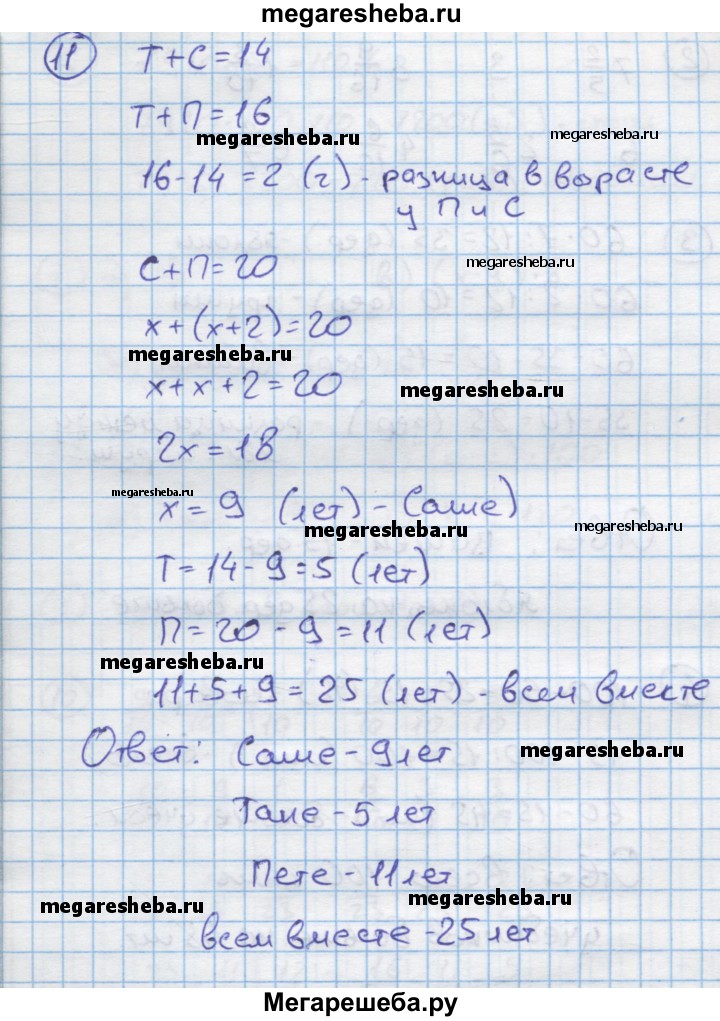 megaresheba.ru
11 Т+С=14
Т+П=16
megaresheba.ru megaresheba.ru
16-14=2 (г) - разница в возрасте
у П и С
megaresheba.ru
С+П=20
х+(х+2)=20
megaresheba.ru
х+х+2=20
megaresheba.ru
2х=18
megaresheba.ru
х=9 (лет) - Саше)
megaresheba.ru megaresheba.ru
Т=14-9=5 (лет)
П=20-9=11 (лет)
megaresheba.ru
11+5+9=25 (лет) - всем вместе
Ответ: Саше - 9 лет
megaresheba.ru
Тане - 5 лет
Пете - 11 лет
megaresheba.ru megaresheba.ru
всем вместе - 25 лет
Мегарешеба.ру